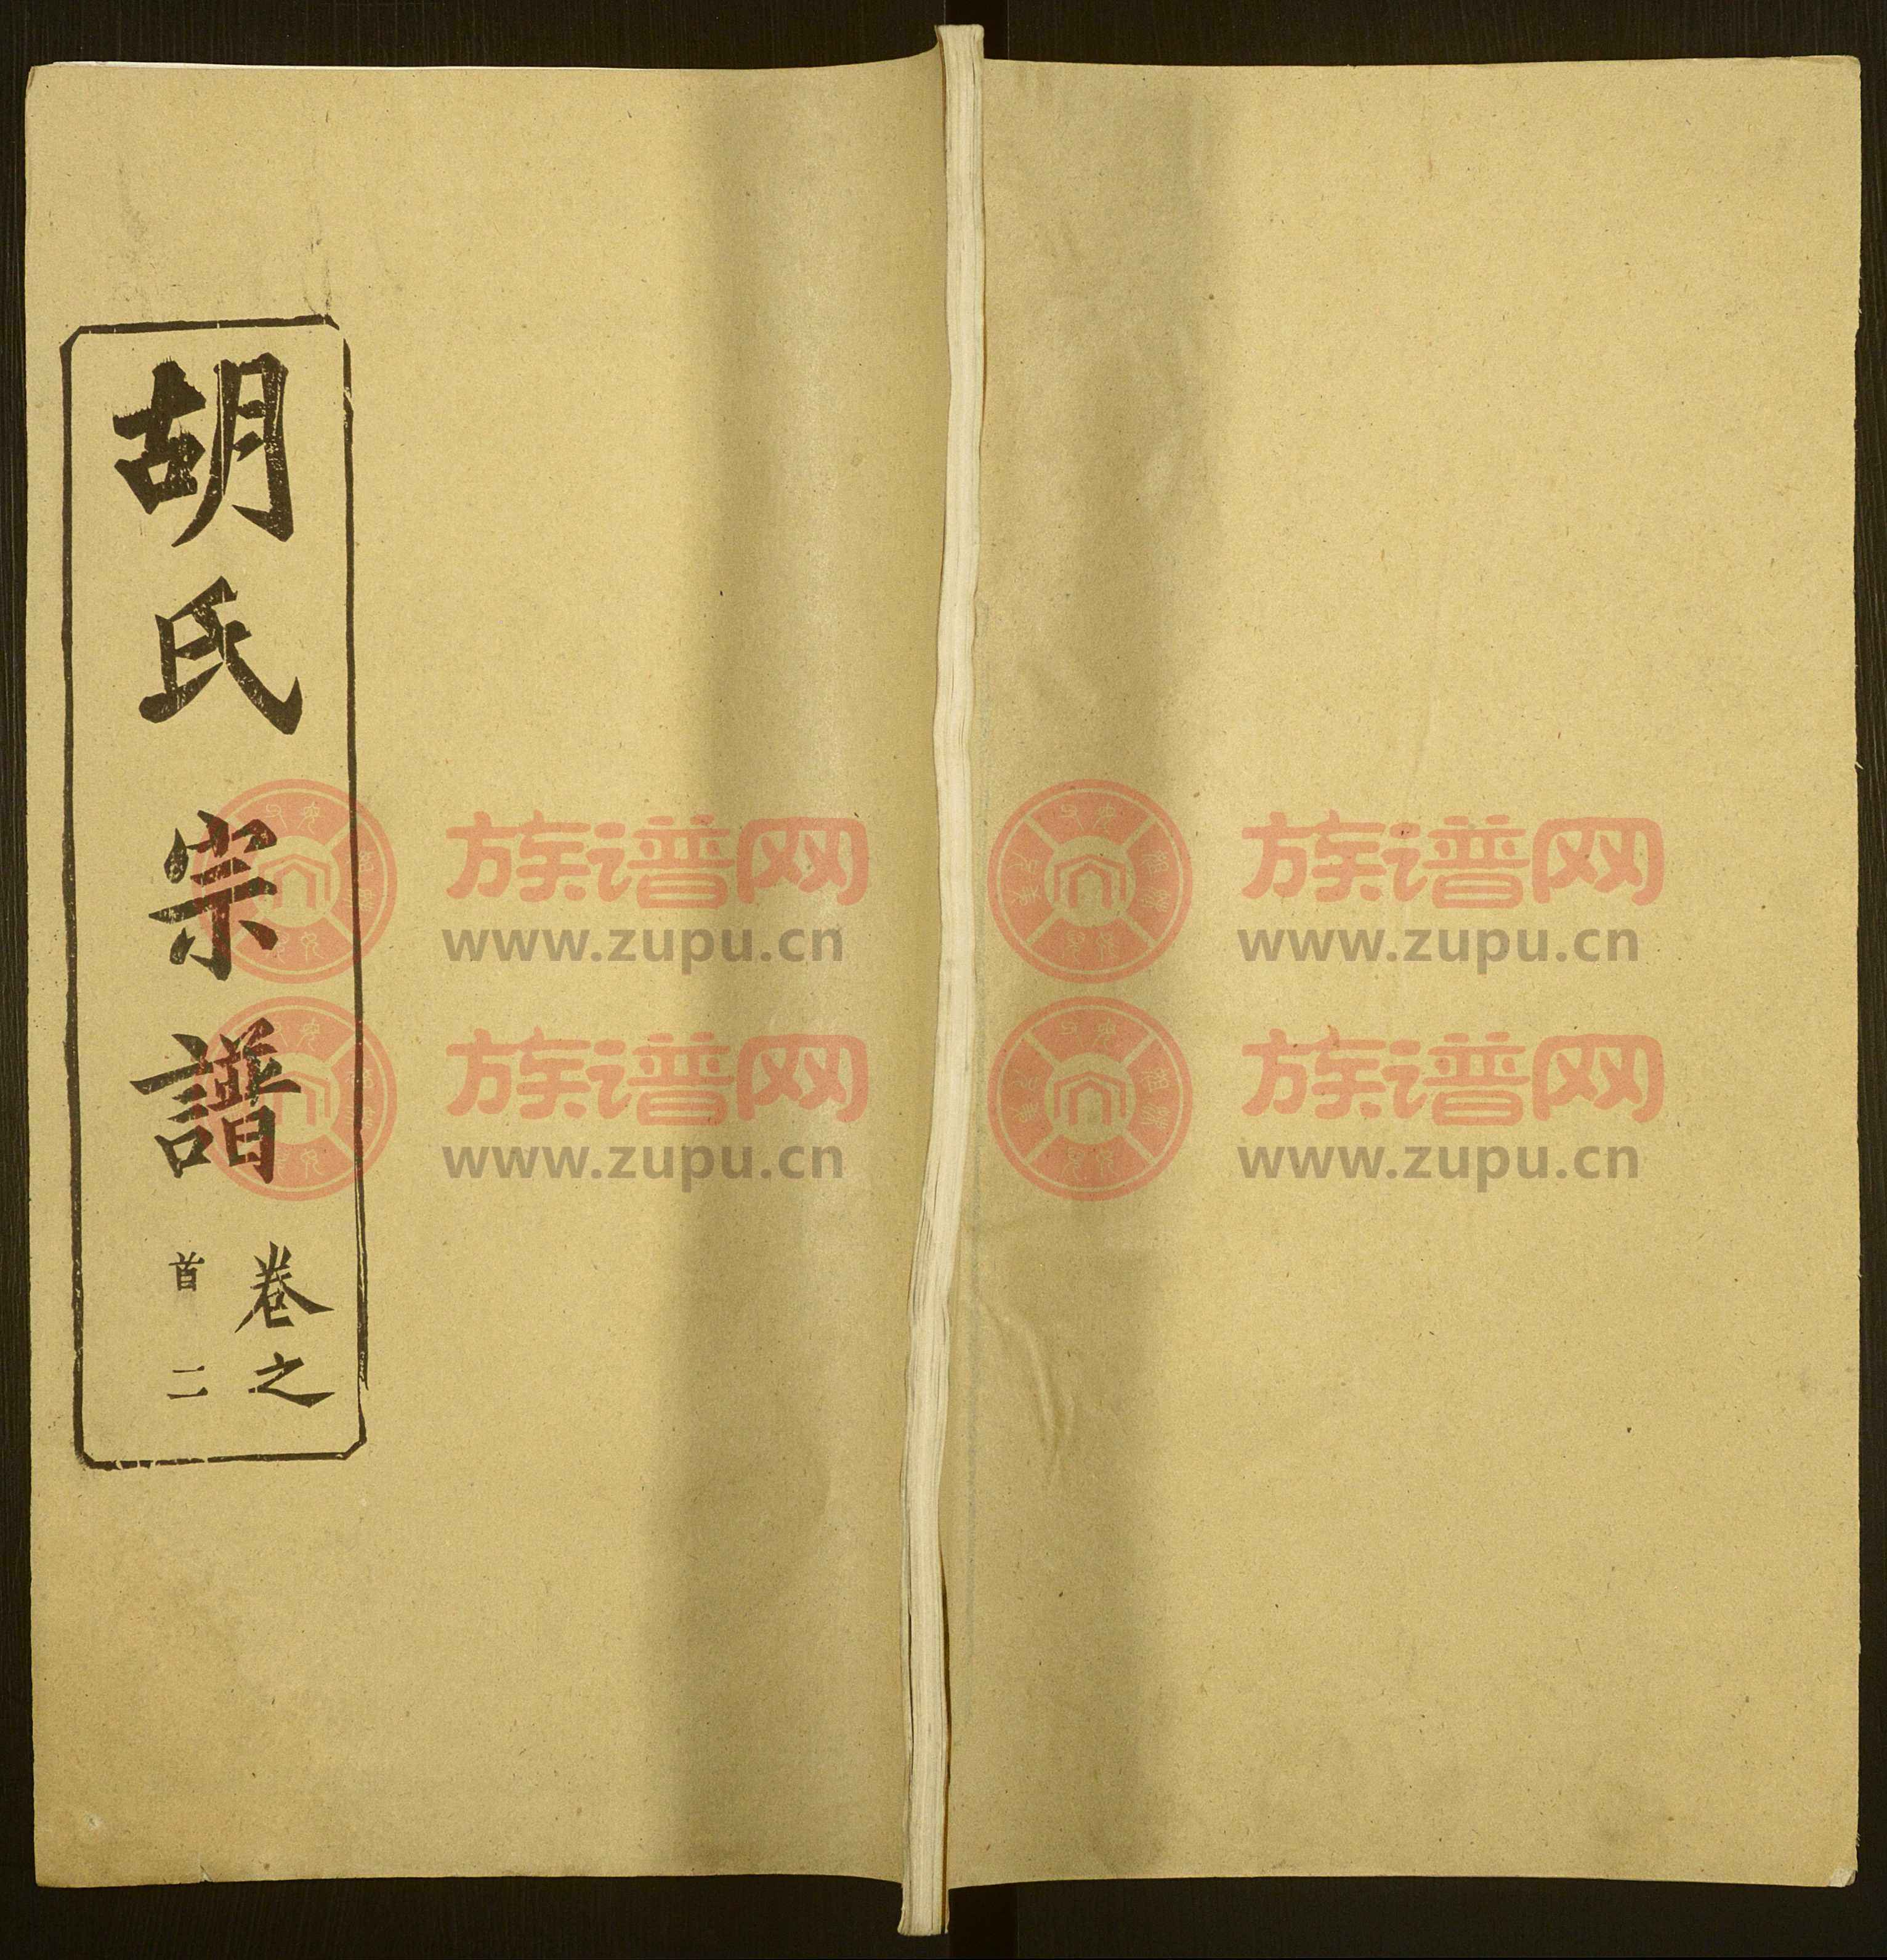 胡氏宗譜
卷之
首二
族谱网
www.zupu.cn
族谱网
www.zupu.cn
族谱网
www.zupu.cn
族谱网
www.zupu.cn